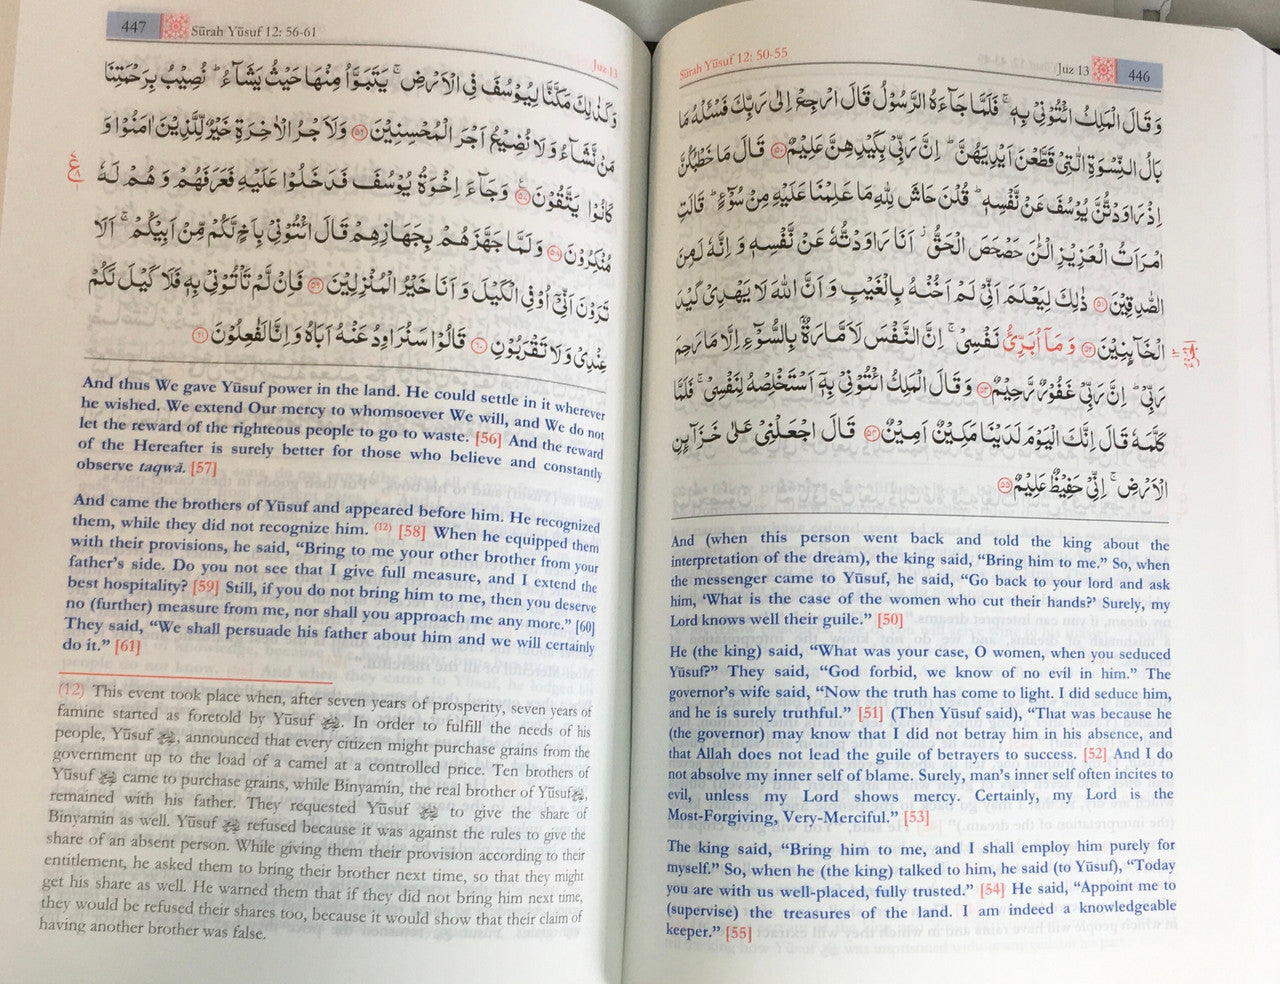 Sūrah Yūsuf 12: 50-55
Juz 13
446
وَقَالَ الْمَلِكُ ائْتُوْنِيْ بِهٖ ۚ فَلَمَّا جَآءَهُ الرَّسُوْلُ قَالَ ارْجِعْ اِلٰى رَبِّكَ فَسْـَٔلْهُ مَا
بَالُ النِّسْوَةِ الّٰتِيْ قَطَّعْنَ اَيْدِيَهُنَّ ؕ اِنَّ رَبِّيْ بِكَيْدِهِنَّ عَلِيْمٌ ﴿۵۰﴾ قَالَ مَا خَطْبُكُنَّ
اِذْ رَاوَدْتُّنَّ يُوْسُفَ عَنْ نَّفْسِهٖ ؕ قُلْنَ حَاشَ لِلّٰهِ مَا عَلِمْنَا عَلَيْهِ مِنْ سُوْٓءٍ ؕ قَالَتِ
امْرَاَتُ الْعَزِيْزِ الْـٰٔنَ حَصْحَصَ الْحَقُّ ۫ اَنَا رَاوَدْتُّهٗ عَنْ نَّفْسِهٖ وَ اِنَّهٗ لَمِنَ
الصّٰدِقِيْنَ ﴿۵۱﴾ ذٰلِكَ لِيَعْلَمَ اَنِّيْ لَمْ اَخُنْهُ بِالْغَيْبِ وَ اَنَّ اللّٰهَ لَا يَهْدِيْ كَيْدَ
الْخَآئِنِيْنَ ﴿۵۲﴾ وَ مَاۤ اُبَرِّئُ نَفْسِيْ ۚ اِنَّ النَّفْسَ لَاَمَّارَةٌۢ بِالسُّوْٓءِ اِلَّا مَا رَحِمَ
رَبِّيْ ؕ اِنَّ رَبِّيْ غَفُوْرٌ رَّحِيْمٌ ﴿۵۳﴾ وَقَالَ الْمَلِكُ ائْتُوْنِيْ بِهٖۤ اَسْتَخْلِصْهُ لِنَفْسِيْ ۚ فَلَمَّا
كَلَّمَهٗ قَالَ اِنَّكَ الْيَوْمَ لَدَيْنَا مَكِيْنٌ اَمِيْنٌ ﴿۵۴﴾ قَالَ اجْعَلْنِيْ عَلٰى خَزَآئِنِ
الْاَرْضِ ۚ اِنِّيْ حَفِيْظٌ عَلِيْمٌ ﴿۵۵﴾
And (when this person went back and told the king about the
interpretation of the dream), the king said, “Bring him to me.” So, when
the messenger came to Yūsuf, he said, “Go back to your lord and ask
him, ‘What is the case of the women who cut their hands?’ Surely, my
Lord knows well their guile.” [50]
He (the king) said, “What was your case, O women, when you seduced
Yūsuf?” They said, “God forbid, we know of no evil in him.” The
governor’s wife said, “Now the truth has come to light. I did seduce him,
and he is surely truthful.” [51] (Then Yūsuf said), “That was because he
(the governor) may know that I did not betray him in his absence, and
that Allah does not lead the guile of betrayers to success. [52] And I do
not absolve my inner self of blame. Surely, man’s inner self often incites to
evil, unless my Lord shows mercy. Certainly, my Lord is the
Most-Forgiving, Very-Merciful.” [53]
The king said, “Bring him to me, and I shall employ him purely for
myself.” So, when he (the king) talked to him, he said (to Yūsuf), “Today
you are with us well-placed, fully trusted.” [54] He said, “Appoint me to
(supervise) the treasures of the land. I am indeed a knowledgeable
keeper.” [55]
447
Sūrah Yūsuf 12: 56-61
Juz 13
وَكَذٰلِكَ مَكَّنَّا لِيُوْسُفَ فِي الْاَرْضِ ۚ يَتَبَوَّاُ مِنْهَا حَيْثُ يَشَآءُ ؕ نُصِيْبُ بِرَحْمَتِنَا
مَنْ نَّشَآءُ وَ لَا نُضِيْعُ اَجْرَ الْمُحْسِنِيْنَ ﴿۵۶﴾ وَلَاَجْرُ الْاٰخِرَةِ خَيْرٌ لِّلَّذِيْنَ اٰمَنُوْا وَ
كَانُوْا يَتَّقُوْنَ ﴿۵۷﴾ وَ جَآءَ اِخْوَةُ يُوْسُفَ فَدَخَلُوْا عَلَيْهِ فَعَرَفَهُمْ وَ هُمْ لَهٗ
مُنْكِرُوْنَ ﴿۵۸﴾ وَ لَمَّا جَهَّزَهُمْ بِجَهَازِهِمْ قَالَ ائْتُوْنِيْ بِاَخٍ لَّكُمْ مِّنْ اَبِيْكُمْ ۚ اَلَا
تَرَوْنَ اَنِّيْۤ اُوْفِي الْكَيْلَ وَ اَنَا خَيْرُ الْمُنْزِلِيْنَ ﴿۵۹﴾ فَاِنْ لَّمْ تَاْتُوْنِيْ بِهٖ فَلَا كَيْلَ لَكُمْ
عِنْدِيْ وَ لَا تَقْرَبُوْنِ ﴿۶۰﴾ قَالُوْا سَنُرَاوِدُ عَنْهُ اَبَاهُ وَ اِنَّا لَفٰعِلُوْنَ ﴿۶۱﴾
And thus We gave Yūsuf power in the land. He could settle in it wherever
he wished. We extend Our mercy to whomsoever We will, and We do not
let the reward of the righteous people to go to waste. [56] And the reward
of the Hereafter is surely better for those who believe and constantly
observe taqwā. [57]
And came the brothers of Yūsuf and appeared before him. He recognized
them, while they did not recognize him. (12) [58] When he equipped them
with their provisions, he said, “Bring to me your other brother from your
father’s side. Do you not see that I give full measure, and I extend the
best hospitality? [59] Still, if you do not bring him to me, then you deserve
no (further) measure from me, nor shall you approach me any more.” [60]
They said, “We shall persuade his father about him and we will certainly
do it.” [61]
(12) This event took place when, after seven years of prosperity, seven years of
famine started as foretold by Yūsuf. In order to fulfill the needs of his
people, Yūsuf, announced that every citizen might purchase grains from the
government up to the load of a camel at a controlled price. Ten brothers of
Yūsuf came to purchase grains, while Binyamin, the real brother of Yūsuf,
remained with his father. They requested Yūsuf to give the share of
Binyamin as well. Yūsuf refused because it was against the rules to give the
share of an absent person. While giving them their provision according to their
entitlement, he asked them to bring their brother next time, so that they might
get his share as well. He warned them that if they did not bring him next time,
they would be refused their shares too, because it would show that their claim of
having another brother was false.